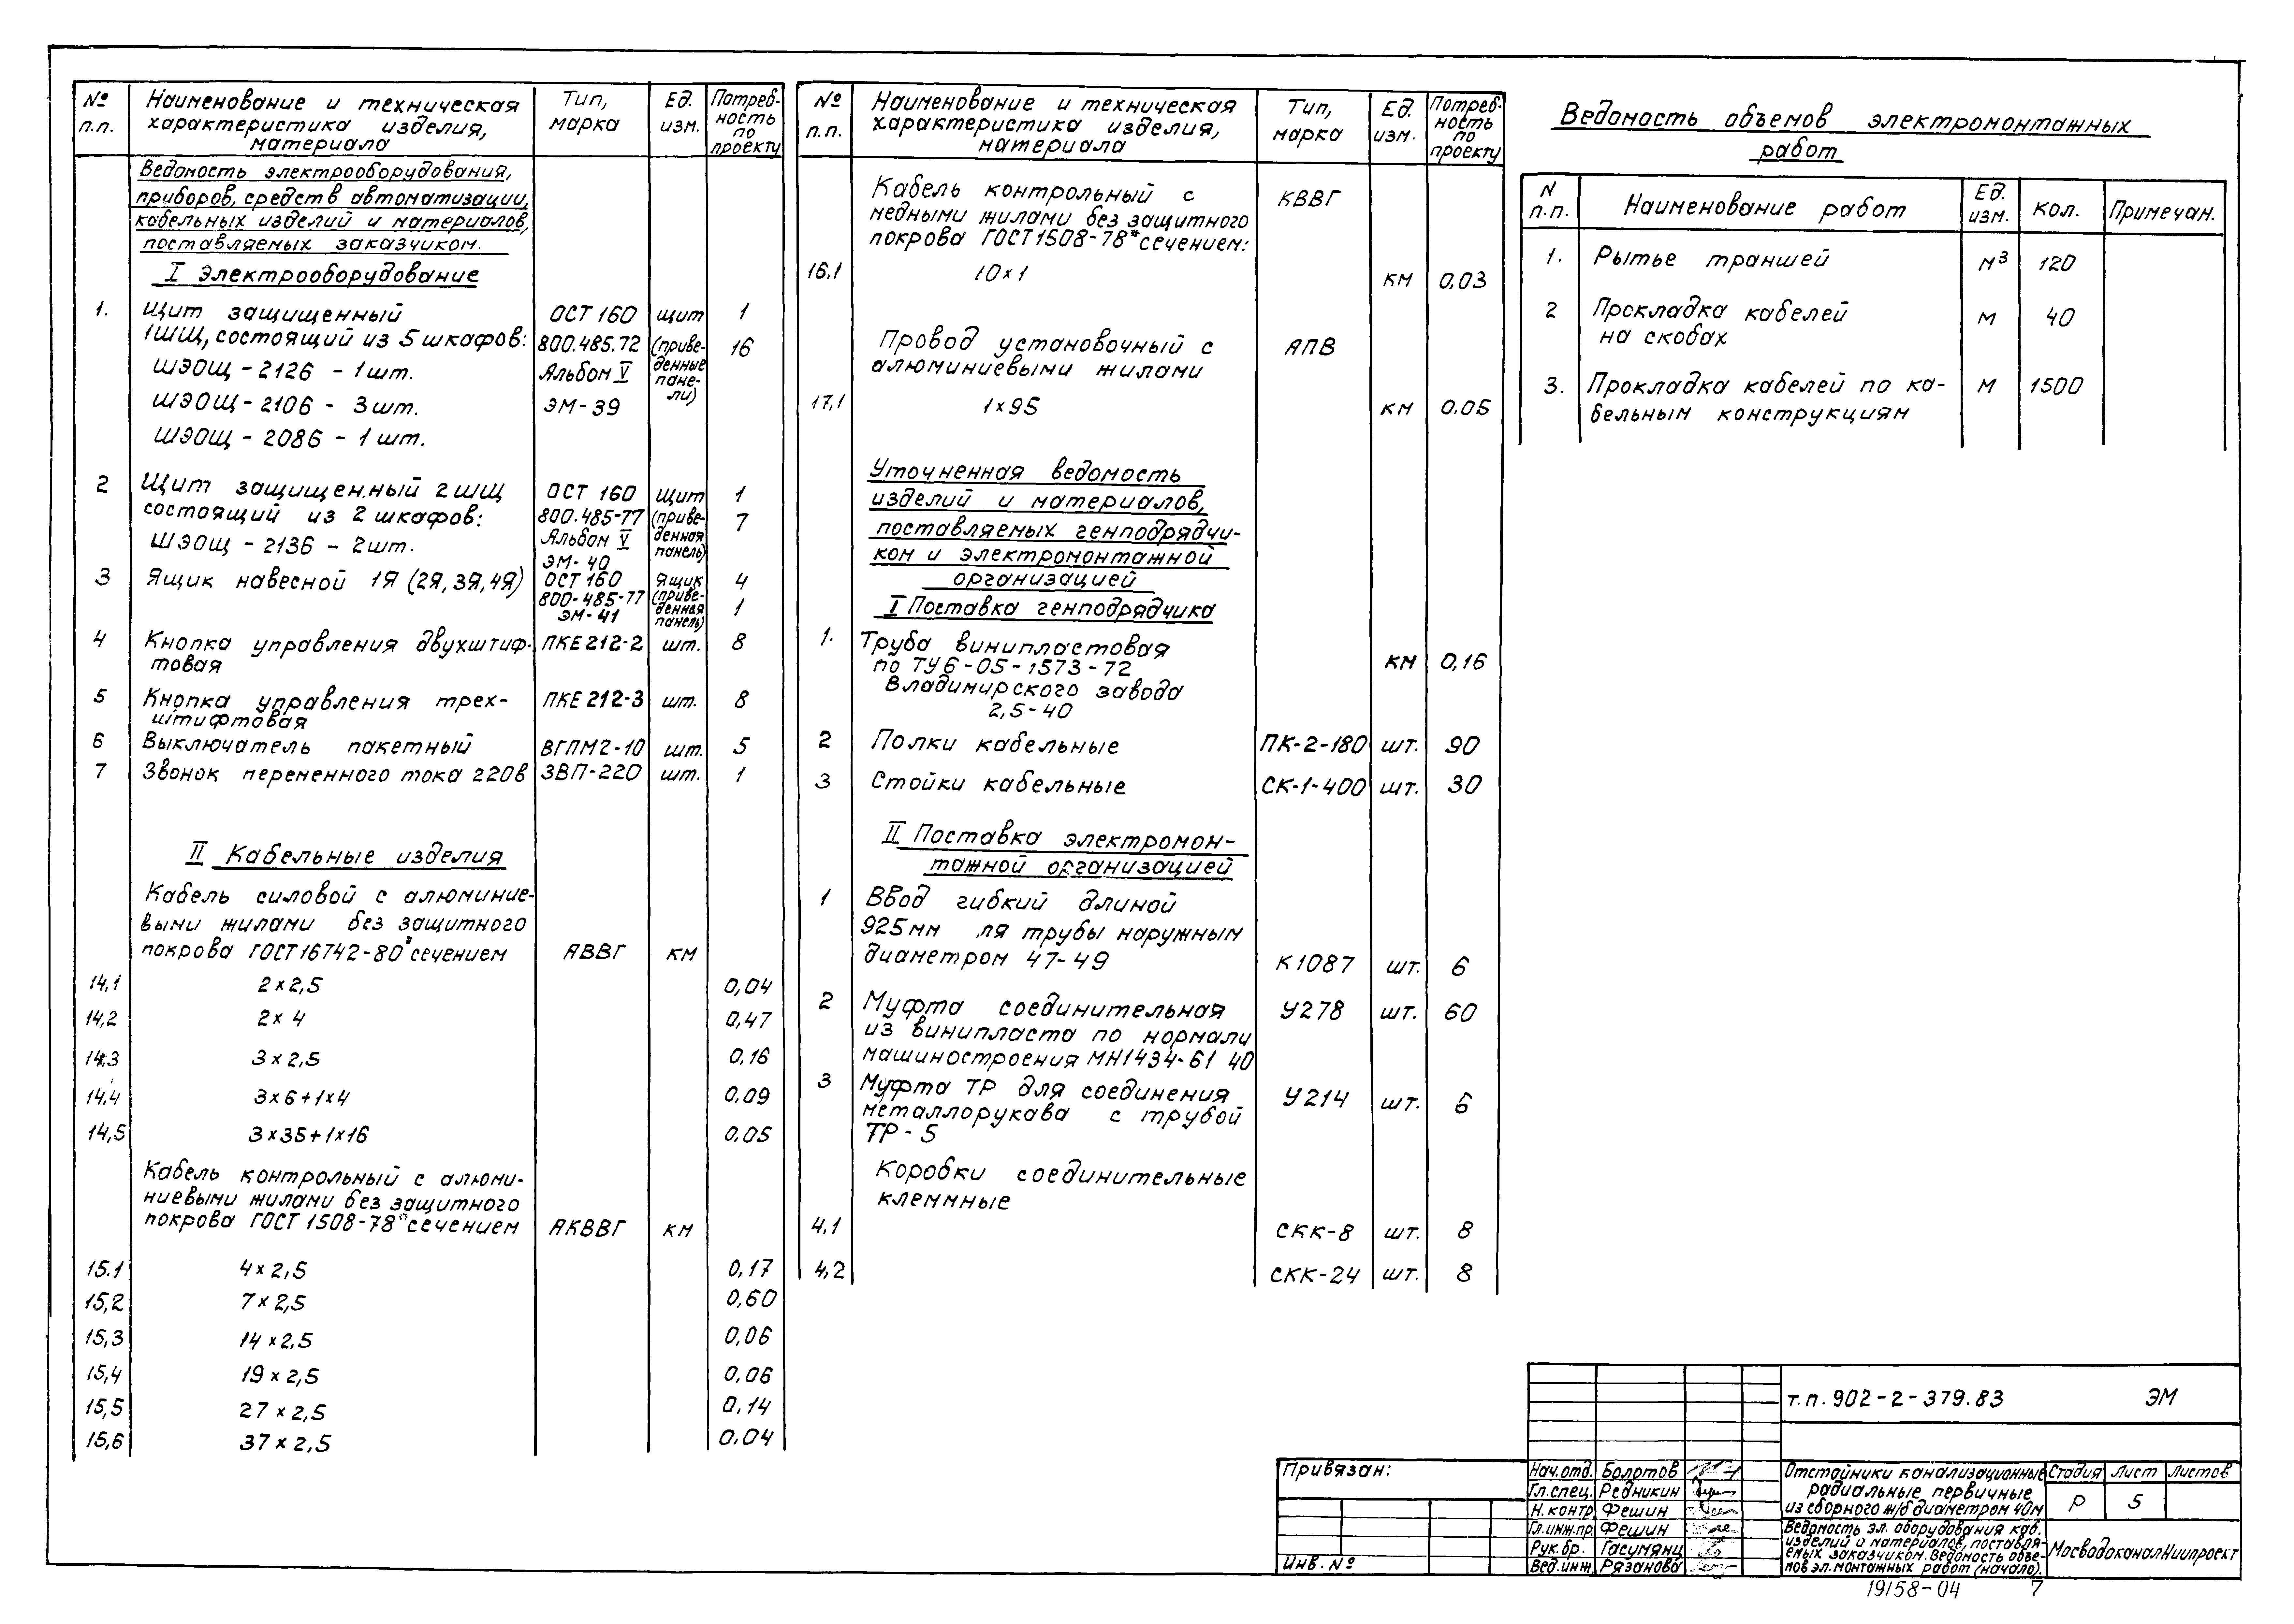 № п.п. | Наименование и техническая характеристика изделия, материала | Тип, марка | Ед. изм. | Потребность по проекту
Ведомость электрооборудования,
приборов, средств автоматизации,
кабельных изделий и материалов,
поставляемых заказчиком.
I Электрооборудование
1. Щит защищенный ОСТ 160 щит 1
1ШЩ, состоящий из 5 шкафов: 800.485.72 (приве- 16
ШЭОЩ - 2126 - 1 шт. Альбом V денные
ШЭОЩ - 2106 - 3 шт. ЭМ-39 пане-
ШЭОЩ - 2086 - 1 шт. ли)
2 Щит защищен.ный 2ШЩ ОСТ 160 щит 1
состоящий из 2 шкафов: 800.485-77 (приве- 7
ШЭОЩ - 2136 - 2шт. Альбом V денная
ЭМ-40 панель)
3 Ящик навесной 1Я (2Я, 3Я, 4Я) ОСТ 160 ящик 4
800-485-77 (приве-
ЭМ-41 денная 1
панель)
4 Кнопка управления двухштиф- ПКЕ 212-2 шт. 8
товая
5 Кнопка управления трех- ПКЕ 212-3 шт. 8
штифтовая
6 Выключатель пакетный ВГПМ2-10 шт. 5
7 Звонок переменного тока 220в ЗВП-220 шт. 1
II Кабельные изделия
Кабель силовой с алюминие-
выми жилами без защитного
покрова ГОСТ 16742-80* сечением АВВГ км
14,1 2×2,5 0,04
14,2 2×4 0,47
14,3 3×2,5 0,16
14,4 3×6+1×4 0,09
14,5 3×35+1×16 0,05
Кабель контрольный с алюми-
ниевыми жилами без защитного
покрова ГОСТ 1508-78* сечением АКВВГ км
15.1 4×2,5 0,17
15,2 7×2,5 0,60
15,3 14×2,5 0,06
15,4 19×2,5 0,06
15,5 27×2,5 0,14
15,6 37×2,5 0.04
№ п.п. | Наименование и техническая характеристика изделия, материала | Тип, марка | Ед. изм. | Потребность по проекту
Кабель контрольный с КВВГ
медными жилами без защитного
покрова ГОСТ 1508-78* сечением:
16,1 10×1 км 0,03
Провод установочный с АПВ
алюминиевыми жилами
17,1 1×95 км 0.05
Уточненная ведомость
изделий и материалов,
поставляемых генподрядчи-
ком и электромонтажной
организацией
I Поставка генподрядчика
1. Труба винипластовая
по ТУ6-05-1573-72 км 0,16
Владимирского завода
2,5-40
2 Полки кабельные ПК-2-180 шт. 90
3 Стойки кабельные СК-1-400 шт. 30
II Поставка электромон-
тажной организацией
1 Ввод гибкий длиной
925мм ля трубы наружным
диаметром 47-49 К1087 шт. 6
2 Муфта соединительная У278 шт. 60
из винипласта по нормали
машиностроения МН1434-61 40
3 Муфта ТР для соединения У214 шт. 6
металлорукава с трубой
ТР-5
Коробки соединительные
клеммные
4,1 СКК-8 шт. 8
4,2 СКК-24 шт. 8
Ведомость объемов электромонтажных
работ
N п.п. | Наименование работ | Ед. изм. | Кол. | Примечан.
1. Рытье траншей м³ 120
2 Прокладка кабелей м 40
на скобах
3. Прокладка кабелей по ка- м 1500
бельным конструкциям
т.п. 902-2-379.83 ЭМ
Привязан:
Инв. №
Нач.отд. Болотов
Гл.спец. Редникин
Н.контр Фешин
Гл.инж.пр. Фешин
Рук.бр. Гасумянц
Вед.инж. Рязанова
Отстойники канализационные
радиальные первичные
из сборного ж/б диаметром 40м
Стадия Лист Листов
Р 5
Ведомость эл. оборудования каб.
изделий и материалов, поставля-
емых заказчиком. Ведомость объе-
мов эл.монтажных работ (начало).
МосводоканалНиипроект
19158-04 7